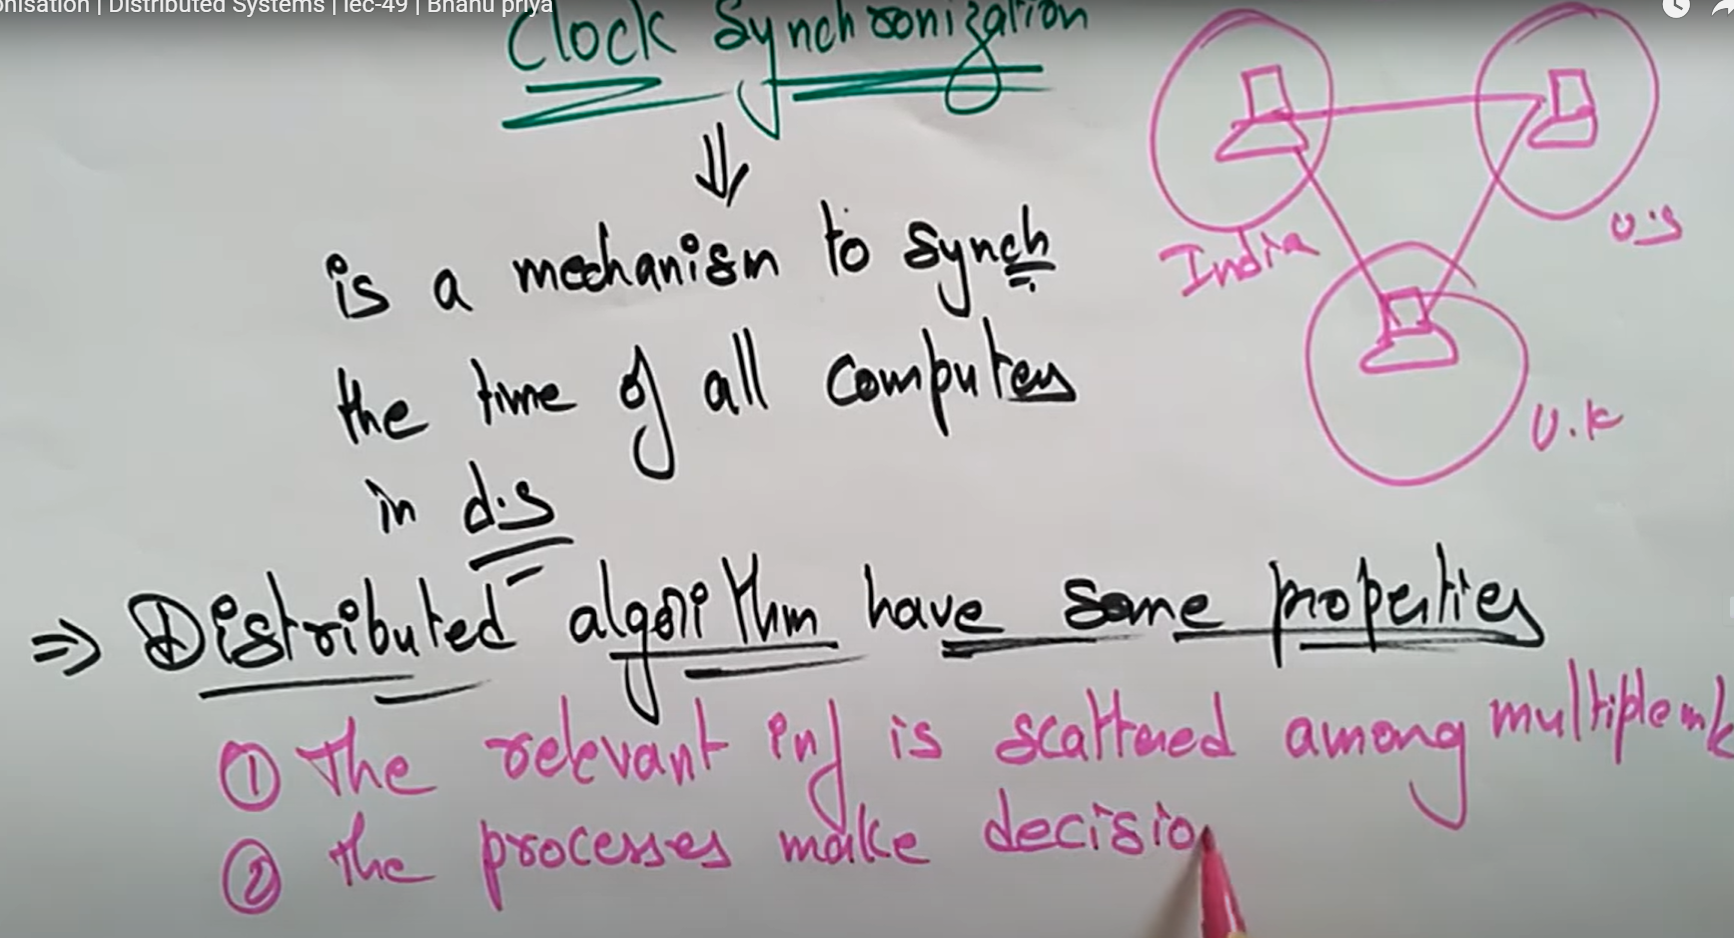 onisation | Distributed Systems | lec-49 | Bhanu priya
Clock Synchronization
⇓
is a mechanism to synch
the time of all computers
in d.s
India
U.S
U.K
⇒ Distributed algorithm have some properties
① The relevant inf is scattered among multiple m/c
② the processes make decisio